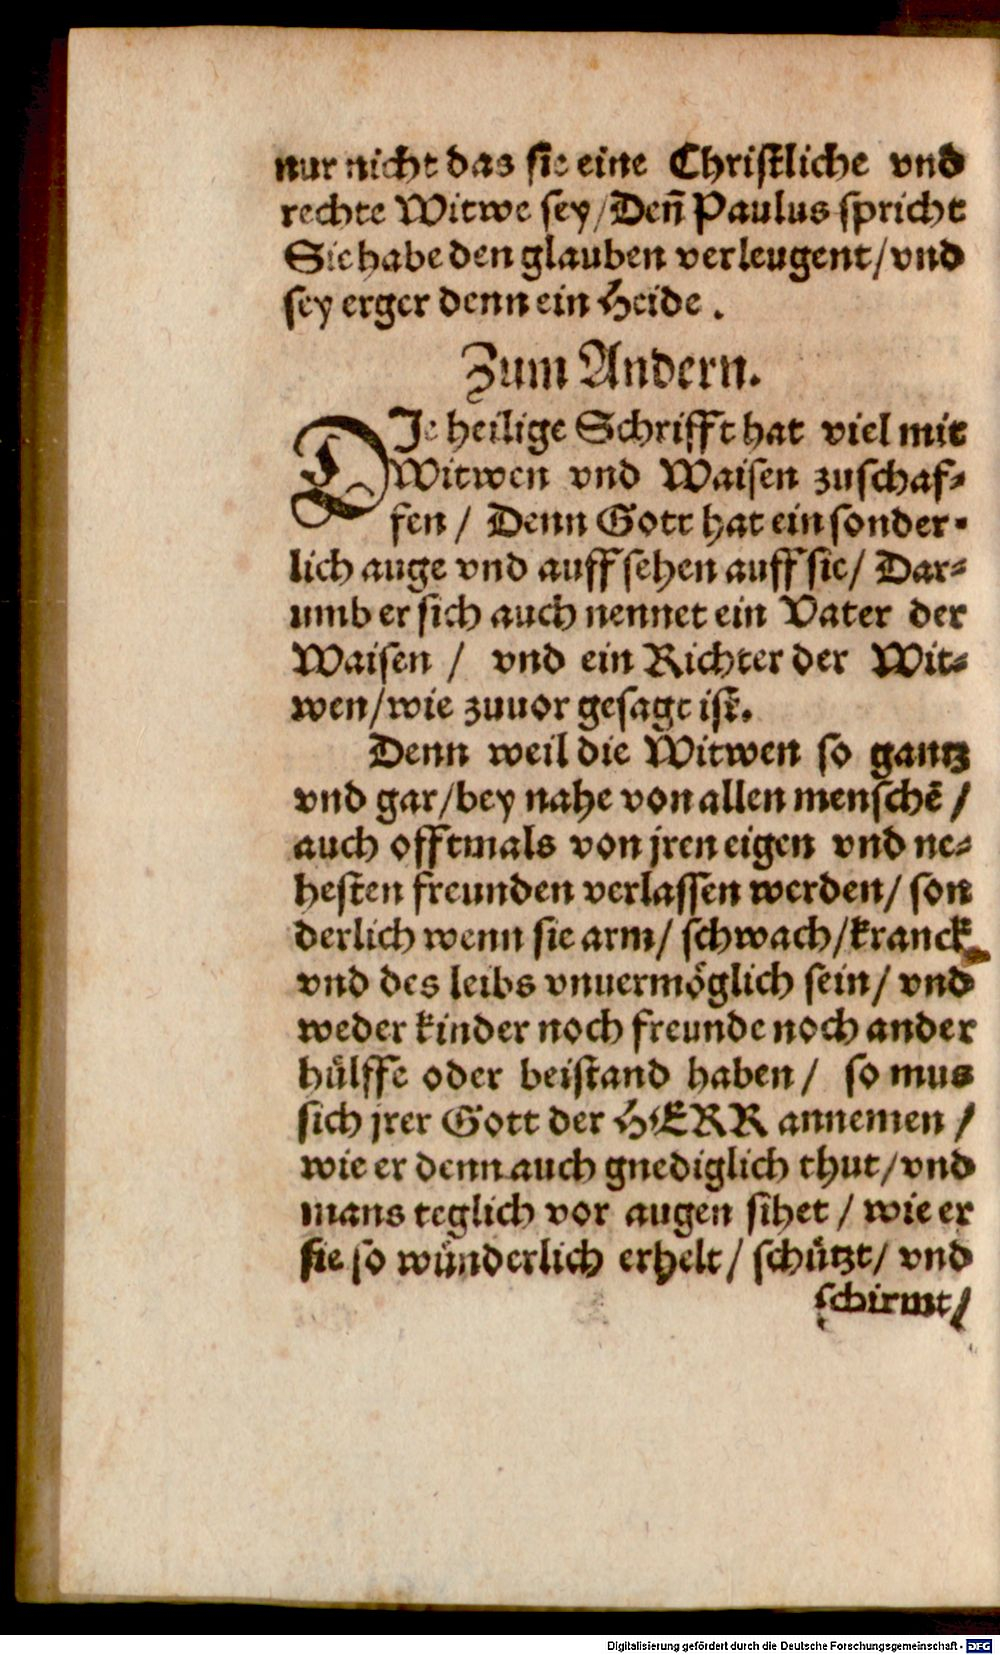 nur nicht das sie eine Christliche vnd
rechte Witwe sey/Deñ Paulus spricht
Sie habe den glauben verleugent/vnd
sey erger denn ein Heide.
Zum Andern.
DJe heilige Schrifft hat viel mit
Witwen vnd Waisen zuschaf-
fen / Denn Gott hat ein sonder-
lich auge vnd auff sehen auff sie/ Dar-
umb er sich auch nennet ein Vater der
Waisen / vnd ein Richter der Wit-
wen/wie zuuor gesagt ist.
Denn weil die Witwen so gantz
vnd gar/bey nahe von allen menschē /
auch offtmals von jren eigen vnd ne-
hesten freunden verlassen werden/ son
derlich wenn sie arm/ schwach/kranck
vnd des leibs vnuermöglich sein/ vnd
weder kinder noch freunde noch ander
hülffe oder beistand haben/ so mus
sich jrer Gott der HERR annemen /
wie er denn auch gnediglich thut/vnd
mans teglich vor augen sihet / wie er
sie so wünderlich erhelt/ schützt/ vnd
schirmt/
Digitalisierung gefördert durch die Deutsche Forschungsgemeinschaft - DFG